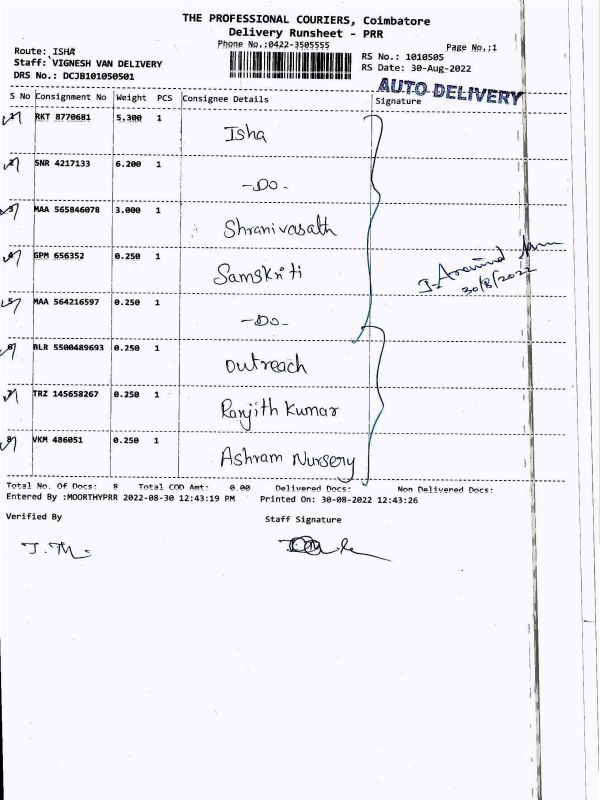 THE PROFESSIONAL COURIERS, Coimbatore
Delivery Runsheet - PRR
Phone No.:0422-3505555 Page No.:1
Route: ISHA
Staff: VIGNESH VAN DELIVERY
DRS No.: DCJB101050501
RS No.: 1010505
RS Date: 30-Aug-2022
AUTO DELIVERY
S No Consignment No Weight PCS Consignee Details Signature
1 RKT 8770681 5.300 1 Isha
2 SNR 4217133 6.200 1 -Do-
3 MAA 565846078 3.000 1 Shranivasath
4 GPM 656352 0.250 1 Samskriti
J. Aravind
30/8/2022
5 MAA 564216597 0.250 1 -Do-
6 BLR 5500489693 0.250 1 outreach
7 TRZ 145658267 0.250 1 Ranjith Kumar
8 VKM 486051 0.250 1 Ashram Nursery
Total No. Of Docs: 8 Total COD Amt: 0.00 Delivered Docs: Non Delivered Docs:
Entered By :MOORTHYPRR 2022-08-30 12:43:19 PM Printed On: 30-08-2022 12:43:26
Verified By Staff Signature